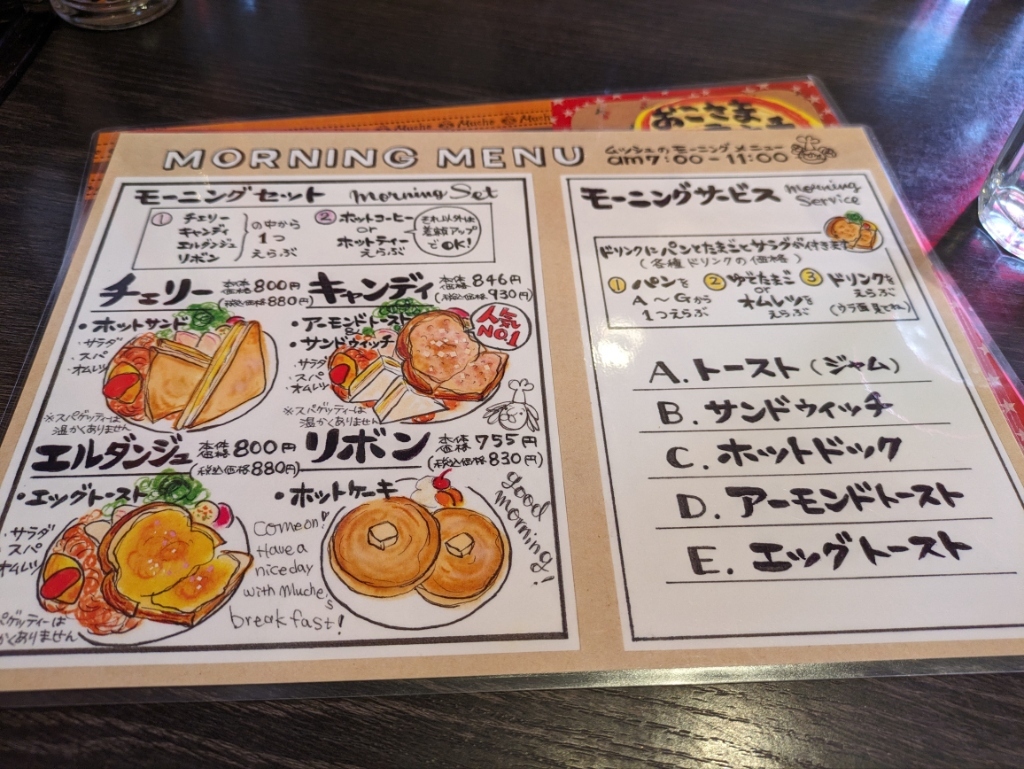 おこさま
Muche Muche Much
MORNING MENU
ムッシュのモーニングメニュー
am7:00-11:00
モーニングセット Morning Set
① チェリー
キャンディ
エルダンジュ
リボン
の中から
1つ
えらぶ
② ホットコーヒー
or
ホットティー
えらぶ
それ以外は
差額アップ
でOK!
チェリー 本体価格800円
(税込価格880円)
・ホットサンド
・サラダ
・スパ
・オムレツ
※スパゲッティーは
温かくありません
キャンディ 本体価格846円
(税込価格930円)
人気
NO.1
・アーモンドトースト
&
・サンドウィッチ
・サラダ
・スパ
・オムレツ
※スパゲッティーは
温かくありません
エルダンジュ 本体価格800円
(税込価格880円)
・エッグトースト
・サラダ
・スパ
オムレツ
パゲッティーは
かくありません
リボン 本体価格755円
(税込価格830円)
・ホットケーキ
Come on!
Have a
nice day
with Muche's
breakfast!
good
morning!
モーニングサービス Morning
Service
ドリンクにパンとたまごとサラダが付きます
(各種ドリンクの価格)
① パンを
A〜Gから
1つえらぶ
② ゆでたまご
or
オムレツを
えらぶ
③ ドリンクを
えらぶ
(ウラ面見てね)
A. トースト(ジャム)
B. サンドウィッチ
C. ホットドック
D. アーモンドトースト
E. エッグトースト